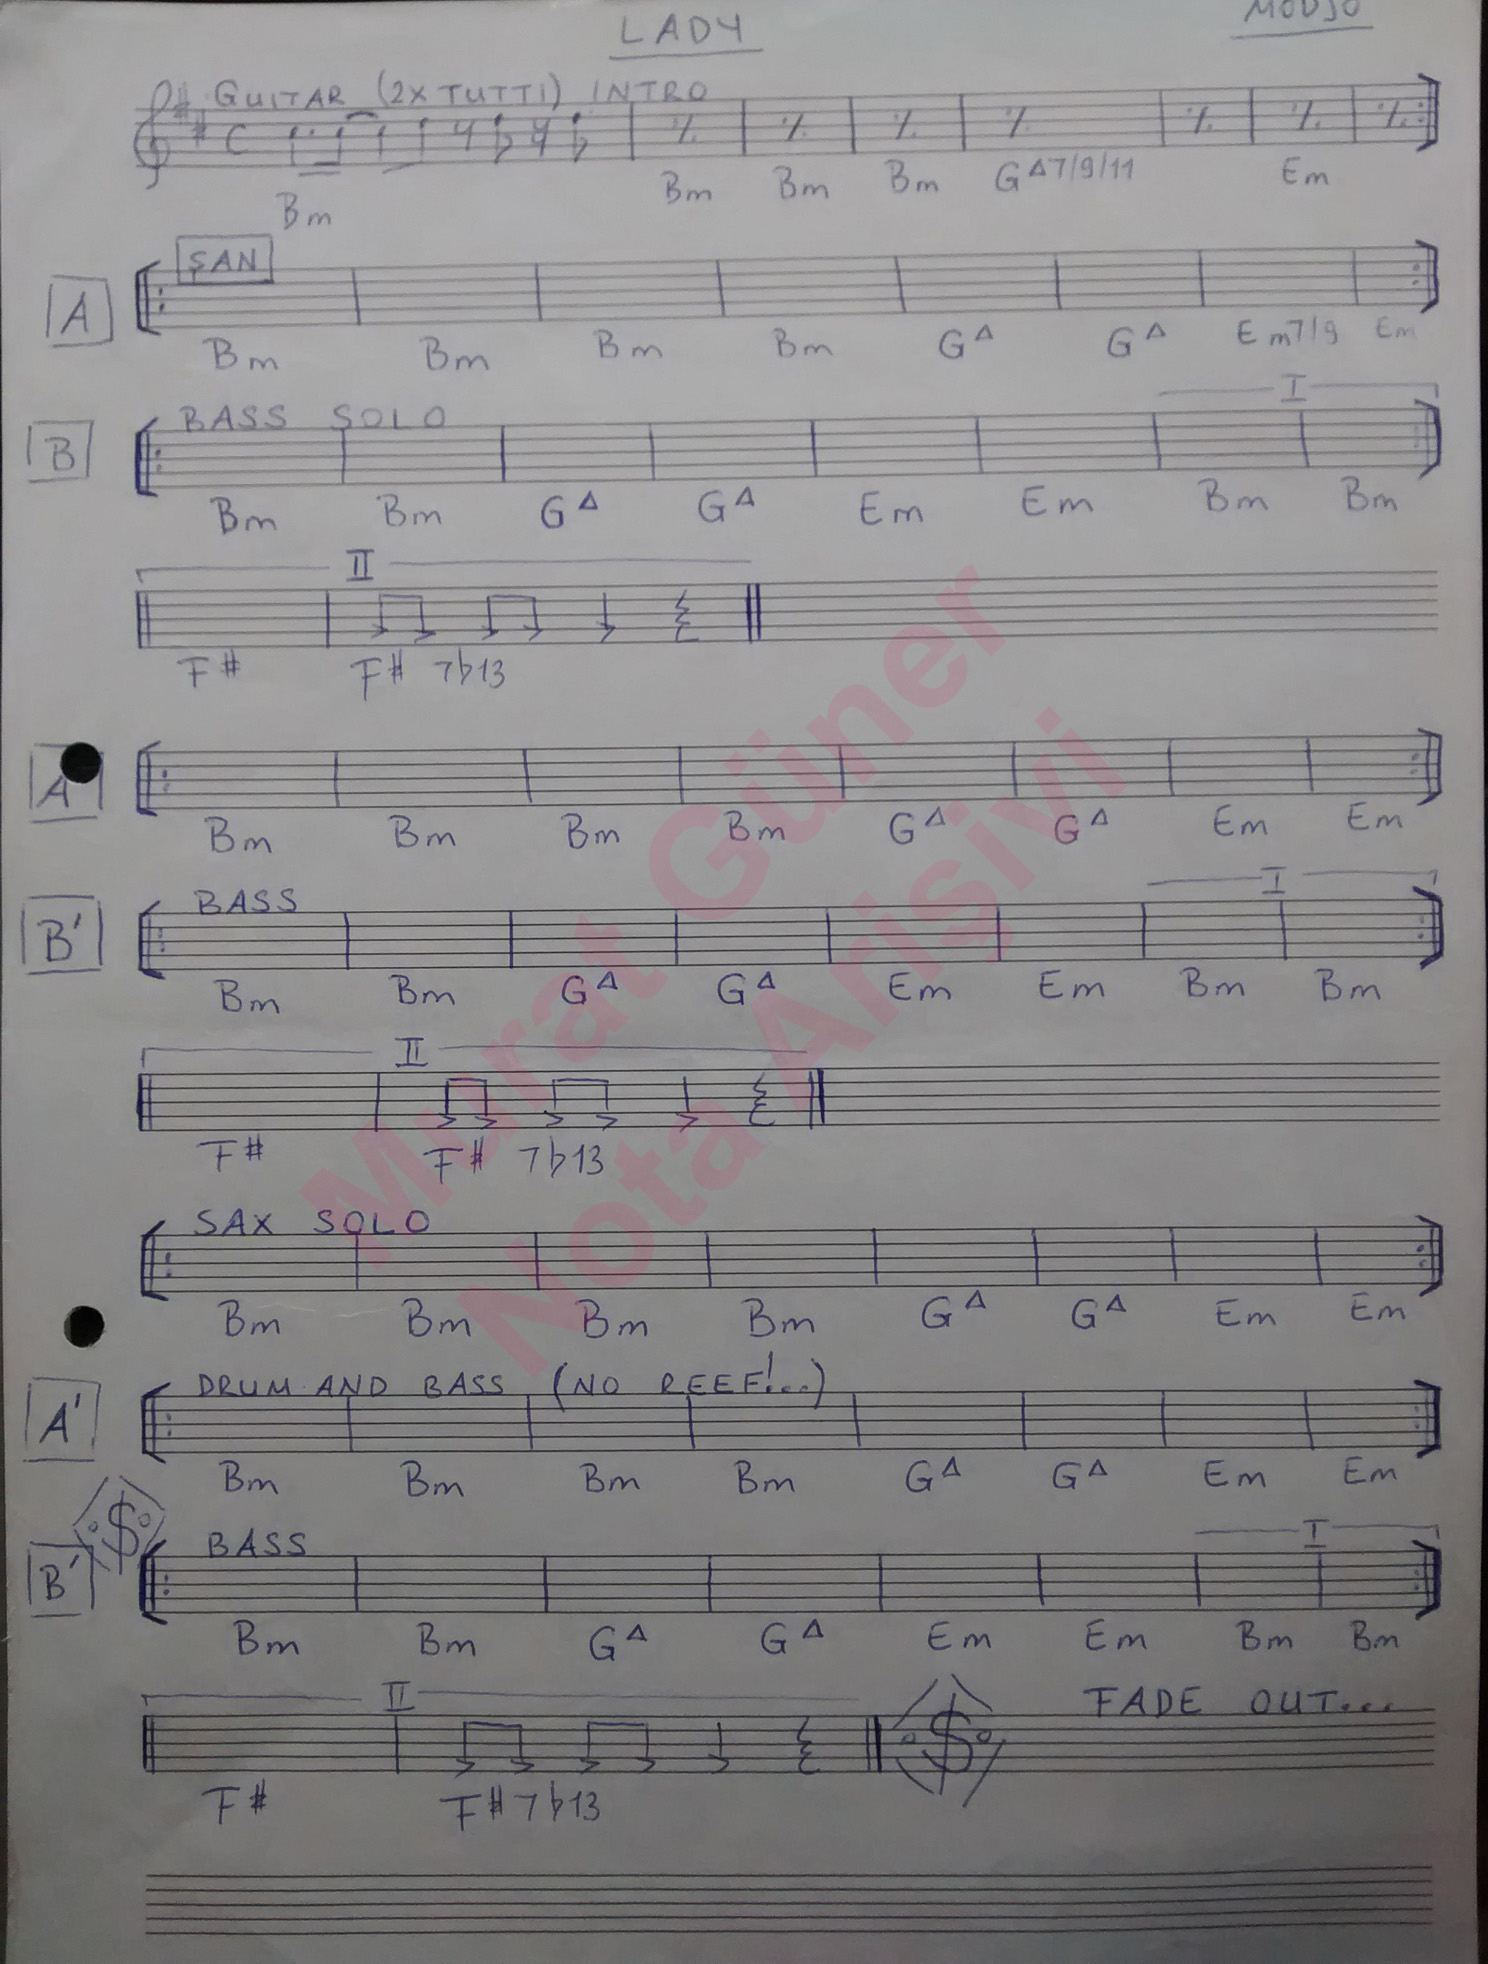 LADY
MODJO
GUITAR (2X TUTTI) INTRO
C
Bm Bm Bm Bm G△7/9/11 Em
ŞAN
A
Bm Bm Bm Bm G△ G△ Em7/9 Em
I
B
BASS SOLO
Bm Bm G△ G△ Em Em Bm Bm
II
F# F#7♭13
A
Bm Bm Bm Bm G△ G△ Em Em
I
B'
BASS
Bm Bm G△ G△ Em Em Bm Bm
II
F# F#7♭13
SAX SOLO
Bm Bm Bm Bm G△ G△ Em Em
DRUM AND BASS (NO REEF!...)
A'
Bm Bm Bm Bm G△ G△ Em Em
I
B'
BASS
Bm Bm G△ G△ Em Em Bm Bm
II
FADE OUT...
F# F#7♭13
Murat Güner
Nota Arişivi